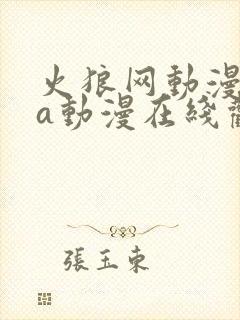 火狼网動漫
a動漫在綫
張玉東